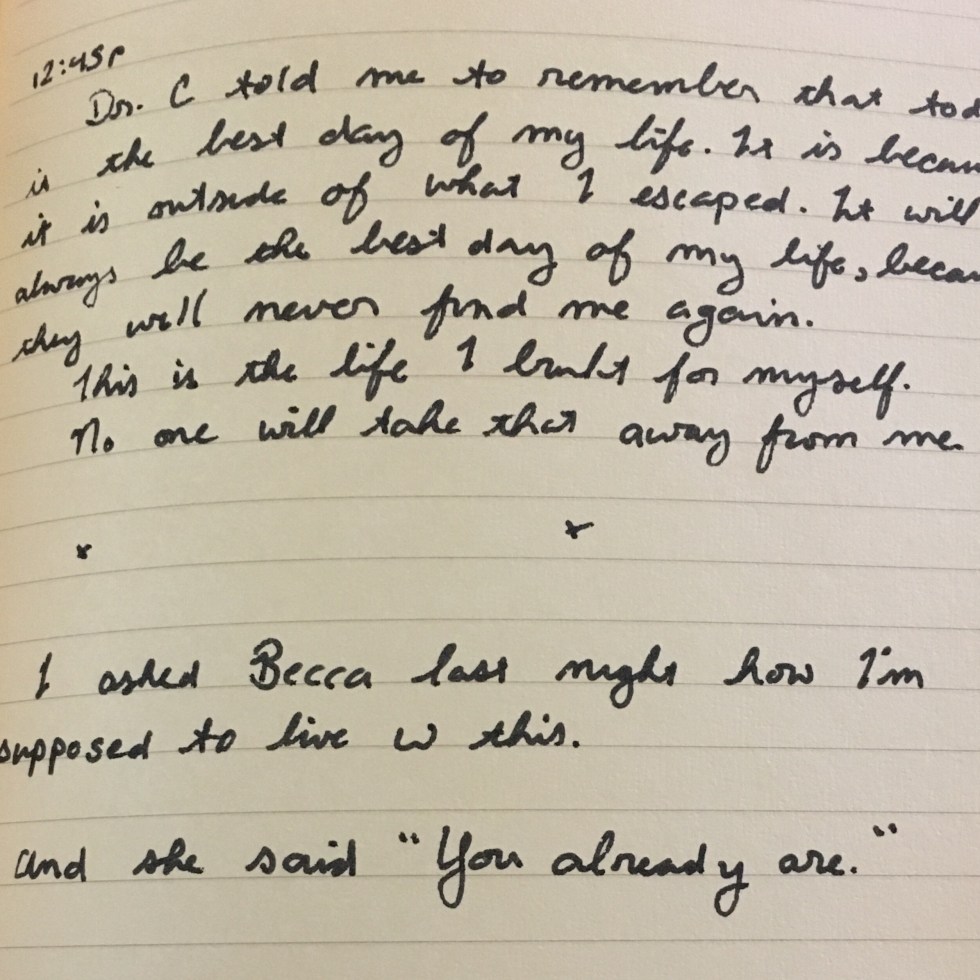 12:45p
Dr. C told me to remember that tod
is the best day of my life. It is becau
it is outside of what I escaped. It will
always be the best day of my life, becau
they will never find me again.
This is the life I built for myself.
No one will take that away from me.
x x
I asked Becca last night how I'm
supposed to live w this.
and she said "You already are."